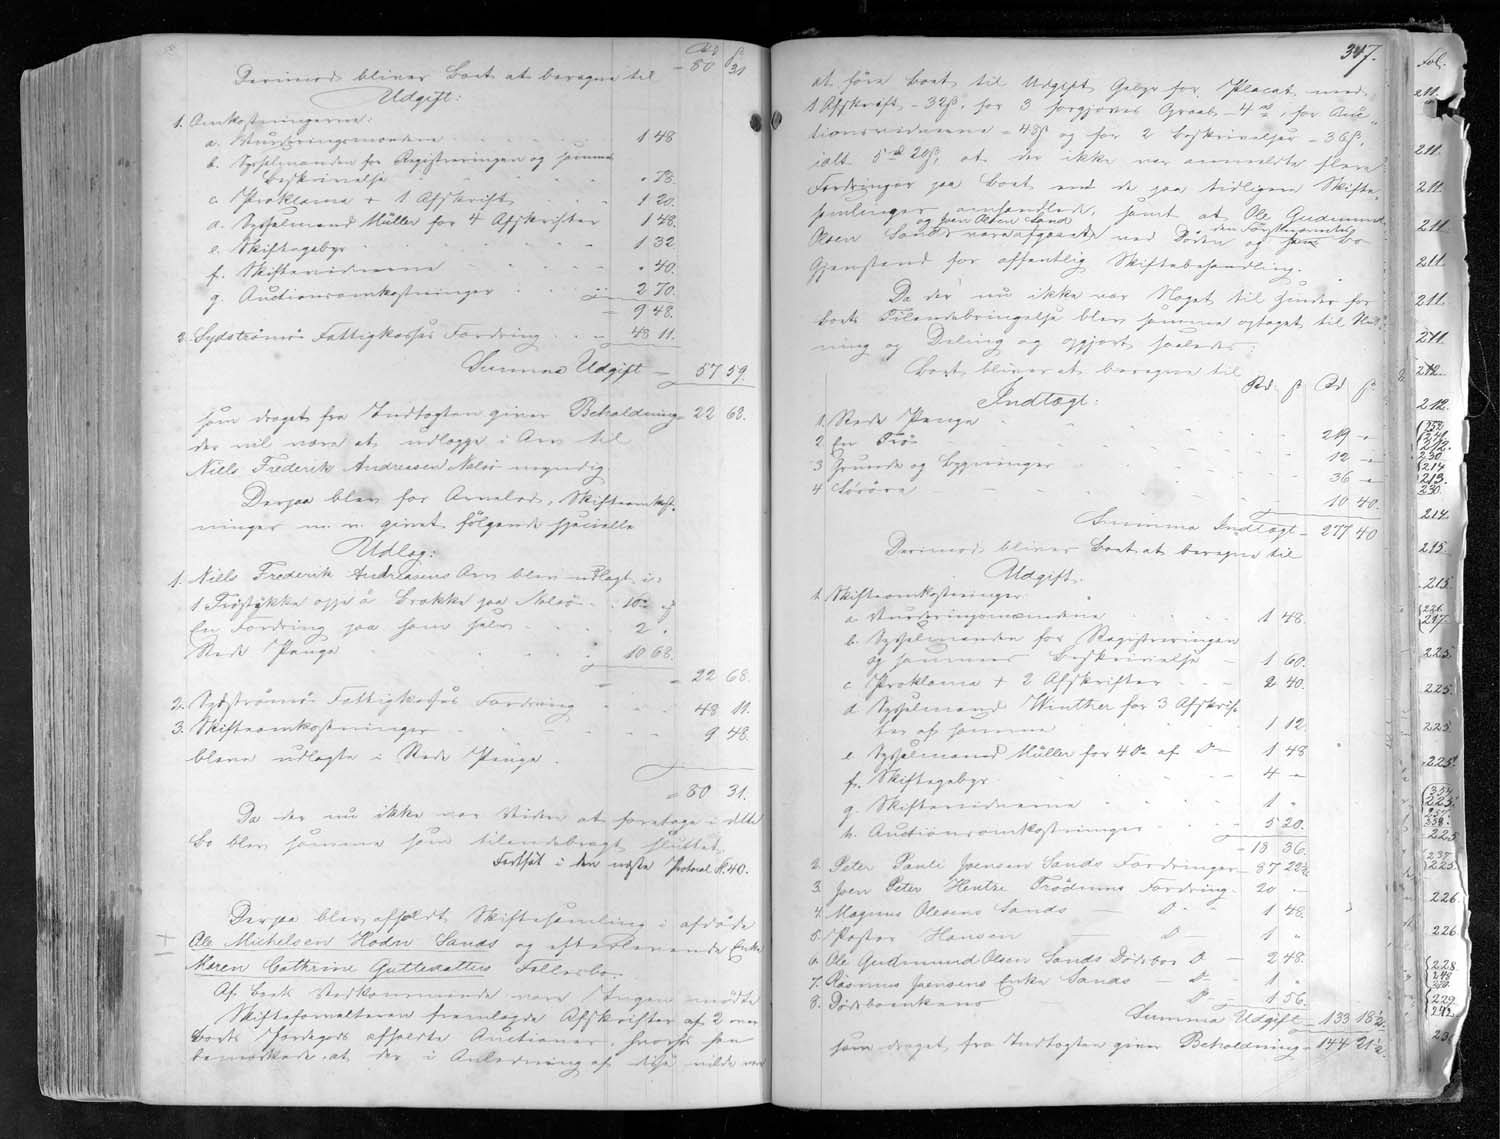 Rd ß
Derimod bliver Boet at beregne til - 80 31
Udgift:
1. Omkostningerne:
a. Vurderingsmændene 1 48
b. Sysselmanden for Registreringen og sammes
Beskrivelse " 78.
c. Proklama + 1 Afskrift 1 20.
d. Sysselmand Müller for 4 Afskrifter 1 48.
e. Skiftegebyr 1 32
f. Skiftevidnerne " 40.
g. Auctionsomkostninger 2 70.
- 9 48.
2. Sydstrømø Fattigkasses Fordring 48 11.
Summa Udgift - 57 59.
som draget fra Indtægten giver Beholdning 22 68.
der vil være at udlægge i Arv til
Niels Frederik Andreasen Nolsø myndig.
Derpaa blev for Arvelod, Skifteomkost-
ninger m. v. givet følgende specielle
Udlæg:
1. Niels Frederik Andreasens Arv blev udlagt i:
1 Træstykke oppe á Brekke paa Nolsø 10 "
En Fordring paa ham selv 2 "
Rede Penge 10 68.
= 22 68.
2. Sydstrømø Fattigkasses Fordring 48 11.
3. Skifteomkostninger 9 48.
bleve udlagte i Rede Penge.
= 80 31.
Da der nu ikke var Videre at foretage i dette
Bo blev samme som tilendebragt sluttet.
Fortsat i den næste Protocol P. 40.
Derpaa blev afholdt Skiftesamling i afdøde
Ole Michelsen Hodn Sands og efterlevende Enke
Maren Cathrine Guttesdatters Fællesbo.
Af Boets Vedkommende vare Ingen mødte
Skifteforvalteren fremlagde Afskrifter af 2 over
Boets Jordegods afholdte Auctioner, hvorhos han
bemærkede, at der i Anledning af disse vilde være
347.
at føre Boet til Udgift Gebyr for Placat med
1 Afskrift - 32ß, for 3 forgjæves Opraab - 4 rd, for Auc-
tionsvidnerne - 48ß og for 2 Beskrivelser - 36ß,
ialt 5 rd 20ß, at der ikke var anmeldte flere
Fordringer paa Boet, end de paa tidligere Skifte-
samlinger omhandlede, samt at Ole Gudmund
og Joen Olsen Sand
Olsen Sands vare afgaaet ved Døden og den Førstnævntes Bo
Gjenstand for offentlig Skiftebehandling.
Da der nu ikke var Noget til Hinder for
Boets Tilendebringelse blev samme optaget til Slut-
ning og Deling og opgjort saaledes:
Boet bliver at beregne til
Rd. ß Rd ß.
Indtægt:
1. Rede Penge 219 "
2. En 12 "
3 Grunde og Bygninger 36 "
4 Løsøre 10 40.
Summa Indtægt - 277 40
Derimod bliver Boet at beregne til
Udgift.
1. Skifteomkostninger:
a Vurderingsmændene 1 48.
b. Sysselmanden for Registreringen
og sammes Beskrivelse - 1 60.
c Proklama + 2 Afskrifter 2 40.
d Sysselmand Winther for 3 Afskrif-
ter af samme 1 12.
e Sysselmand Müller for 4 Do af Do 1 48
f. Skiftegebyr 4 "
g. Skiftevidnerne 1 "
h. Auctionsomkostninger 5 20.
- 18 36.
2. Peter Pauli Joensen Sands Fordringer - 87 22½
3. Joen Peter Hentze Trødums Fordring 20 "
4. Magnus Olesens Sands - Do 1 48.
5. Pastor Hansen - Do 1 "
6 Ole Gudmund Olsen Sands Dødsbo Do - 2 48.
7. Rasmus Joensens Enke Sands - Do 1 "
8. Do 1 56.
Summa Udgift - 133 18½
som draget fra Indtægten giver Beholdning - 144 21½
Fol.
211.
211.
211.
211.
211.
211.
211
212.
212.
212.
230
214
213.
230
214.
215.
215
226
225
225.
225
225
225.
225
225.
226
226
228
229